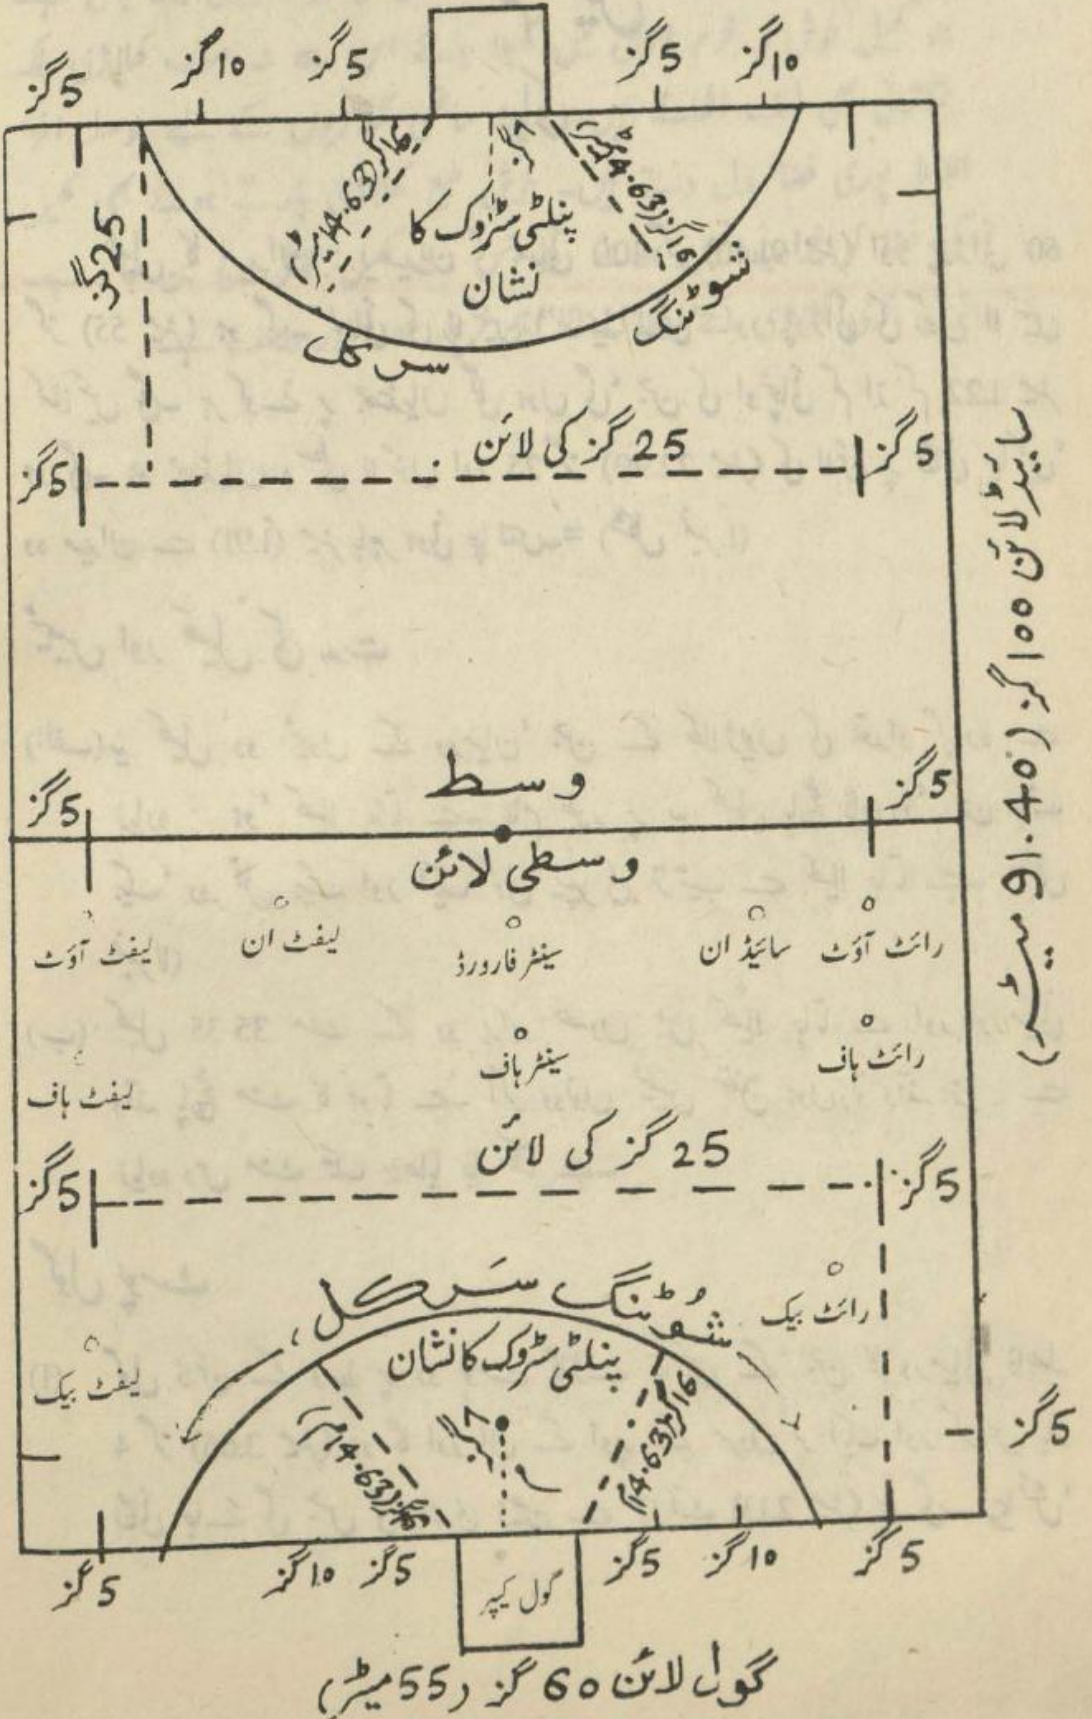 5گز 10گز 5گز 5گز 10گز
25گز
16گز (14.63 میٹر)
7گز
16گز (14.63 میٹر)
پنلٹی سٹروک کا
نشان
شوٹنگ
سرکل
5گز 25 گز کی لائن 5گز
سائیڈ لائن 100 گز (91.40 میٹر)
5گز وسط 5گز
وسطی لائن
لیفٹ آؤٹ لیفٹ ان سینٹر فارورڈ سائیڈ ان رائٹ آؤٹ
لیفٹ ہاف سینٹر ہاف رائٹ ہاف
5گز 25 گز کی لائن 5گز
شوٹنگ سرکل
لیفٹ بیک رائٹ بیک
پنلٹی سٹروک کا نشان
16گز (14.63م)
7گز
16گز (14.63م)
5گز
5گز 10گز 5گز گول کیپر 5گز 10گز 5گز
گول لائن 60 گز (55 میٹر)